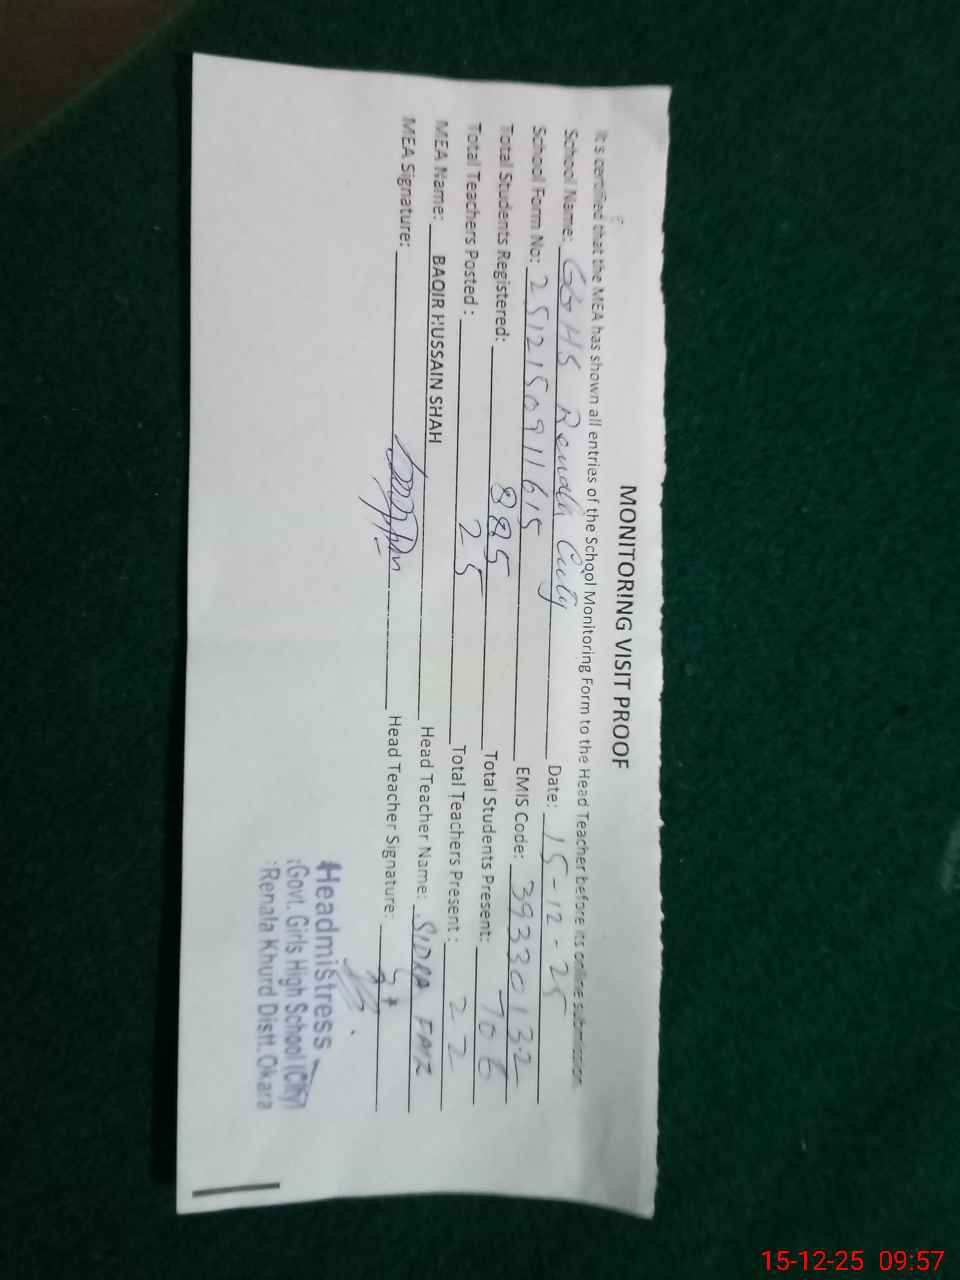 MONITORING VISIT PROOF
It's certified that the MEA has shown all entries of the School Monitoring Form to the Head Teacher before its online submission.
School Name: GGHS Renala City Date: 15-12-25
School Form No: 2512150911615 EMIS Code: 39330132
Total Students Registered: 885 Total Students Present: 706
Total Teachers Posted : 25 Total Teachers Present : 22
MEA Name: BAQIR HUSSAIN SHAH Head Teacher Name: SIDRA FAIZ
MEA Signature: Head Teacher Signature:
Headmistress
Govt. Girls High School (City)
Renala Khurd Distt. Okara
15-12-25 09:57